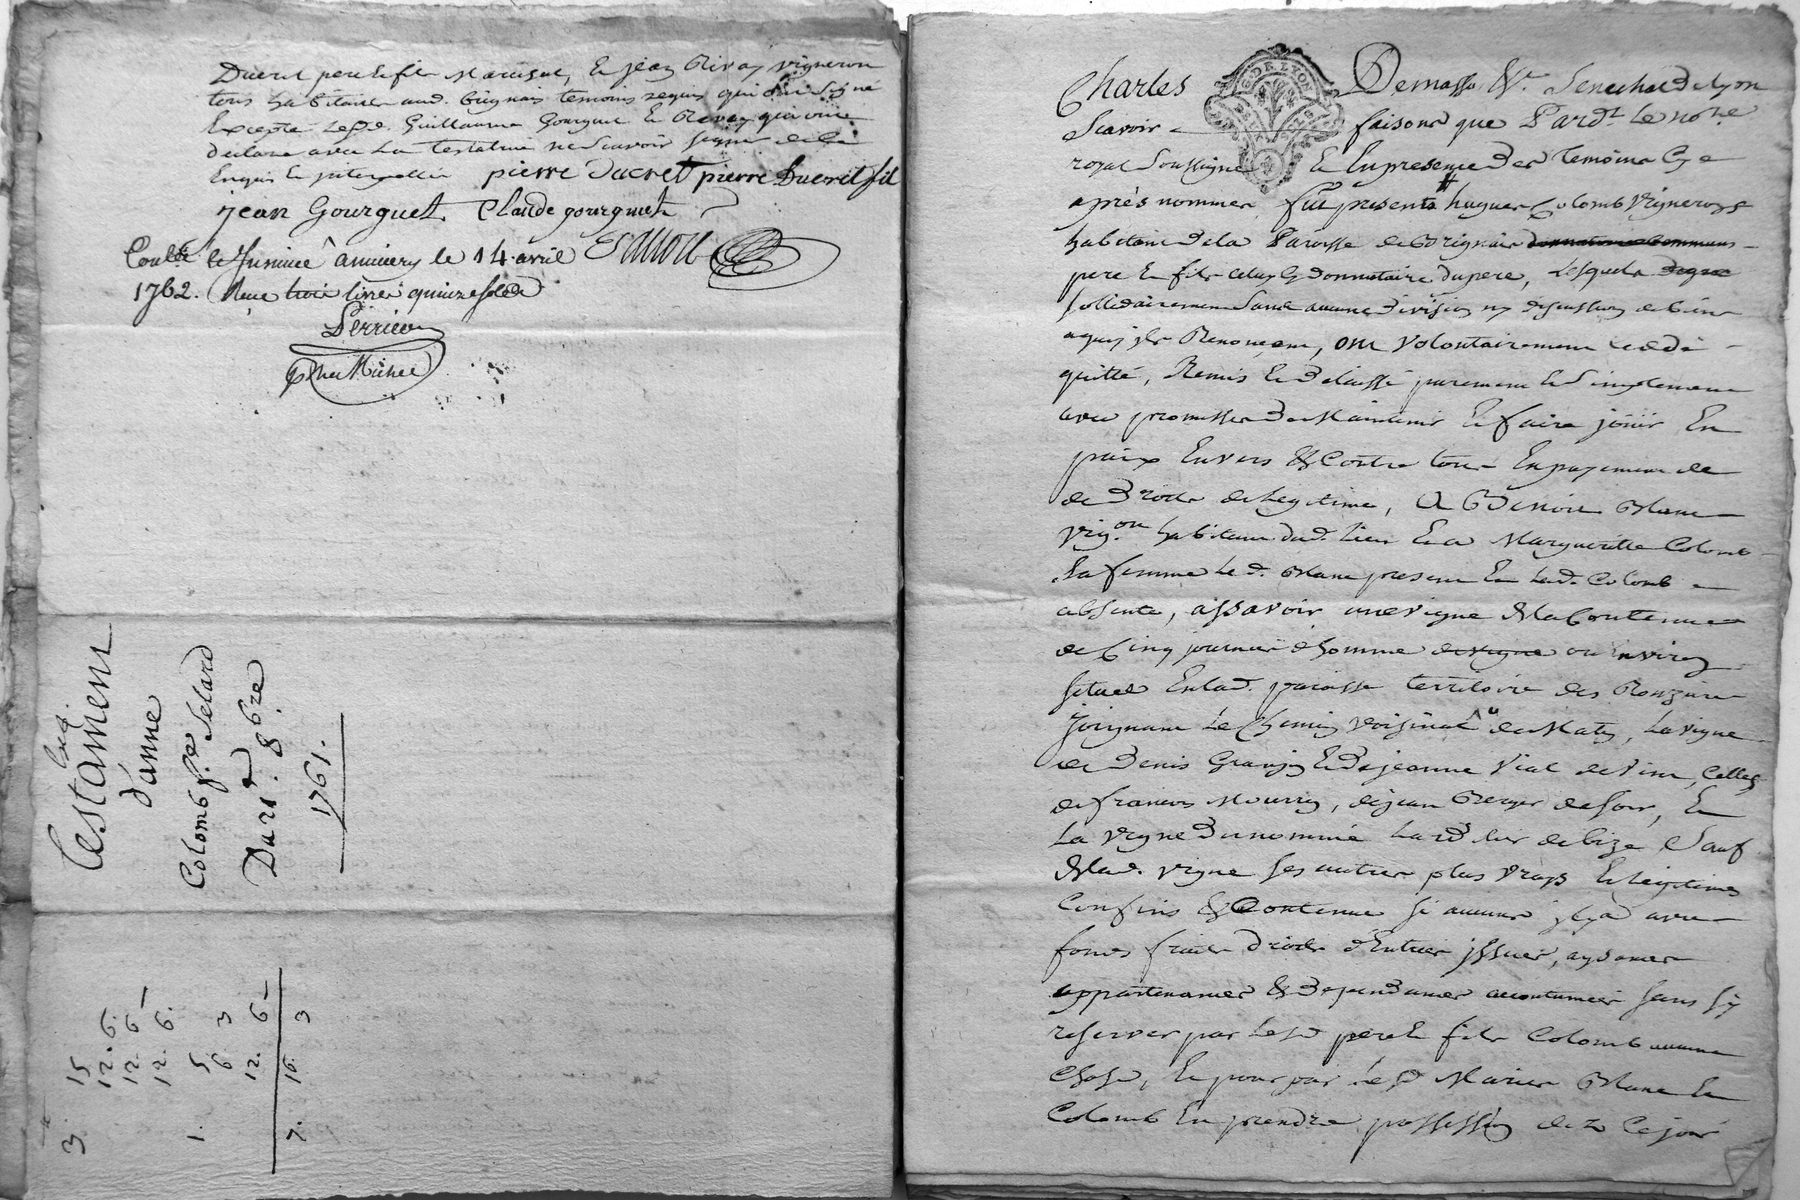 Ducret pere & fils Marechal, & jean Rivay vigneron
tous habitants aud. Brignais temoins requis qui ont signé
Excepté led. Guillaume Gourguet & Rivay qui ont
declaré avec la testatrice ne scavoir signer de ce
Enquis & interpellés pierre Ducret pierre Ducret fil
jean Gourguet Claude gourguet
Coulé & Insinué a anniers le 14 avril
1762. Reçu trois livres quinze sols
Perrieu
Testament
D'anne
Colomb fe. Selard
Du 21 8bre
1761.
3. 15
12. 6.
12. 6
12. 6.
1. 5
6. 3
12. 6
7. 16. 3
Charles Demasso Sr. Senechal de Lyon
Scavoir faisons que Pard.t le no.re
G. DE LYON
royal soussigné & En presence des temoins Cy
après nommés, fut presents hugues Colomb Vignerons
habitant de la Paroisse de Brignais
pere & fils celuy cy donnataire du pere, Lesquels
sollidairement sans aucune division ny discussion de biens
a quoy ils Renonçent, ont volontairement cedé
quitté, Remis & Delaissé purement & Simplement
avec promesse de Maintenir & faire jouir En
paix Envers & Contre tous En payement de
de Droits de Legitime, A Benoit Blanc
vig.on habitant dud. lieu & a Margueritte Colomb
sa femme Le d. Blanc present & lad. Colomb
absente, assavoir une vigne de la Contenue
de Cinq journées d'homme de vigne ou Environ
situee En lad. paroisse territoire des Ronzures
Joignant Le Chemin voisinal de Matin, La vigne
de Denis Granjon & de jeanne Vial de Vent, Celles
de francois Mourry, de jean Berger de soir, &
La vigne du nommé de bize, Sauf
de lad. vigne ses autres plus vrays & Legitimes
Confins & Contenue si aucuns il y a avec
fonds fruits Droits d'Entrées issues, aysances
appartenances & dependances accoutumées sans s'y
reserver par lesd. pere & fils Colomb aucune
Chose, & pour par lesd. Mariés Blanc &
Colomb En prendre possession dez Ce jour